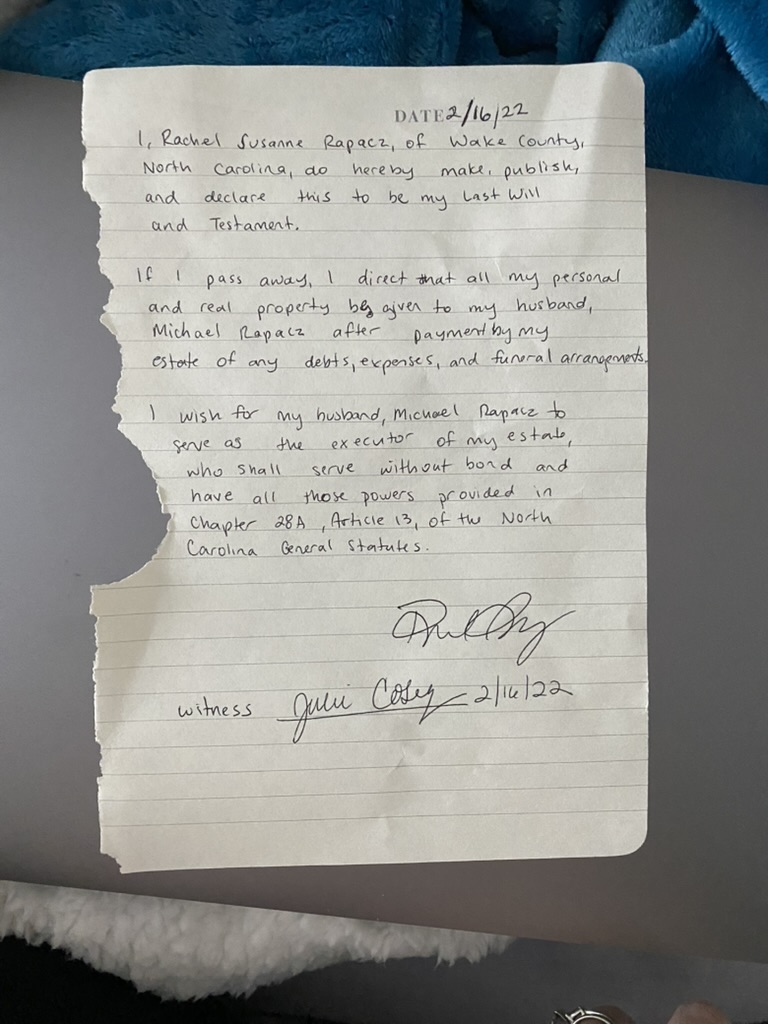 DATE 2/16/22
I, Rachel Susanne Rapacz, of Wake County,
North Carolina, do hereby make, publish,
and declare this to be my Last Will
and Testament.
If I pass away, I direct that all my personal
and real property be given to my husband,
Michael Rapacz after payment by my
estate of any debts, expenses, and funeral arrangements.
I wish for my husband, Michael Rapacz to
serve as the executor of my estate,
who shall serve without bond and
have all those powers provided in
Chapter 28A, Article 13, of the North
Carolina General Statutes.
witness Julie Cosey 2/16/22